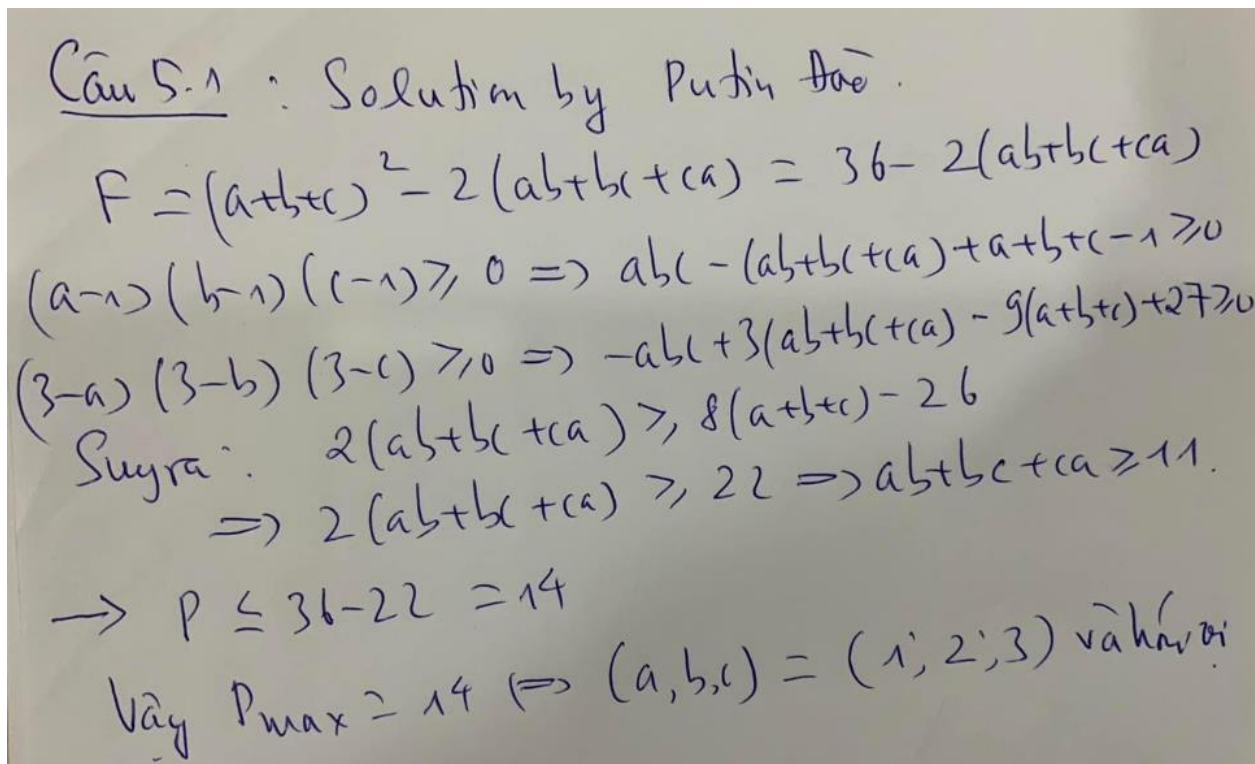 Câu 5.1 : Solution by Putin Đào.
F = (a+b+c)² - 2(ab+bc+ca) = 36 - 2(ab+bc+ca)
(a-1)(b-1)(c-1) ⩾ 0 => abc - (ab+bc+ca) + a+b+c-1 ⩾ 0
(3-a)(3-b)(3-c) ⩾ 0 => -abc + 3(ab+bc+ca) - 9(a+b+c) + 27 ⩾ 0
Suy ra: 2(ab+bc+ca) ⩾ 8(a+b+c) - 26
=> 2(ab+bc+ca) ⩾ 22 => ab+bc+ca ⩾ 11.
→ P ≤ 36-22 = 14
Vậy Pmax = 14 <=> (a,b,c) = (1;2;3) và hoán vị